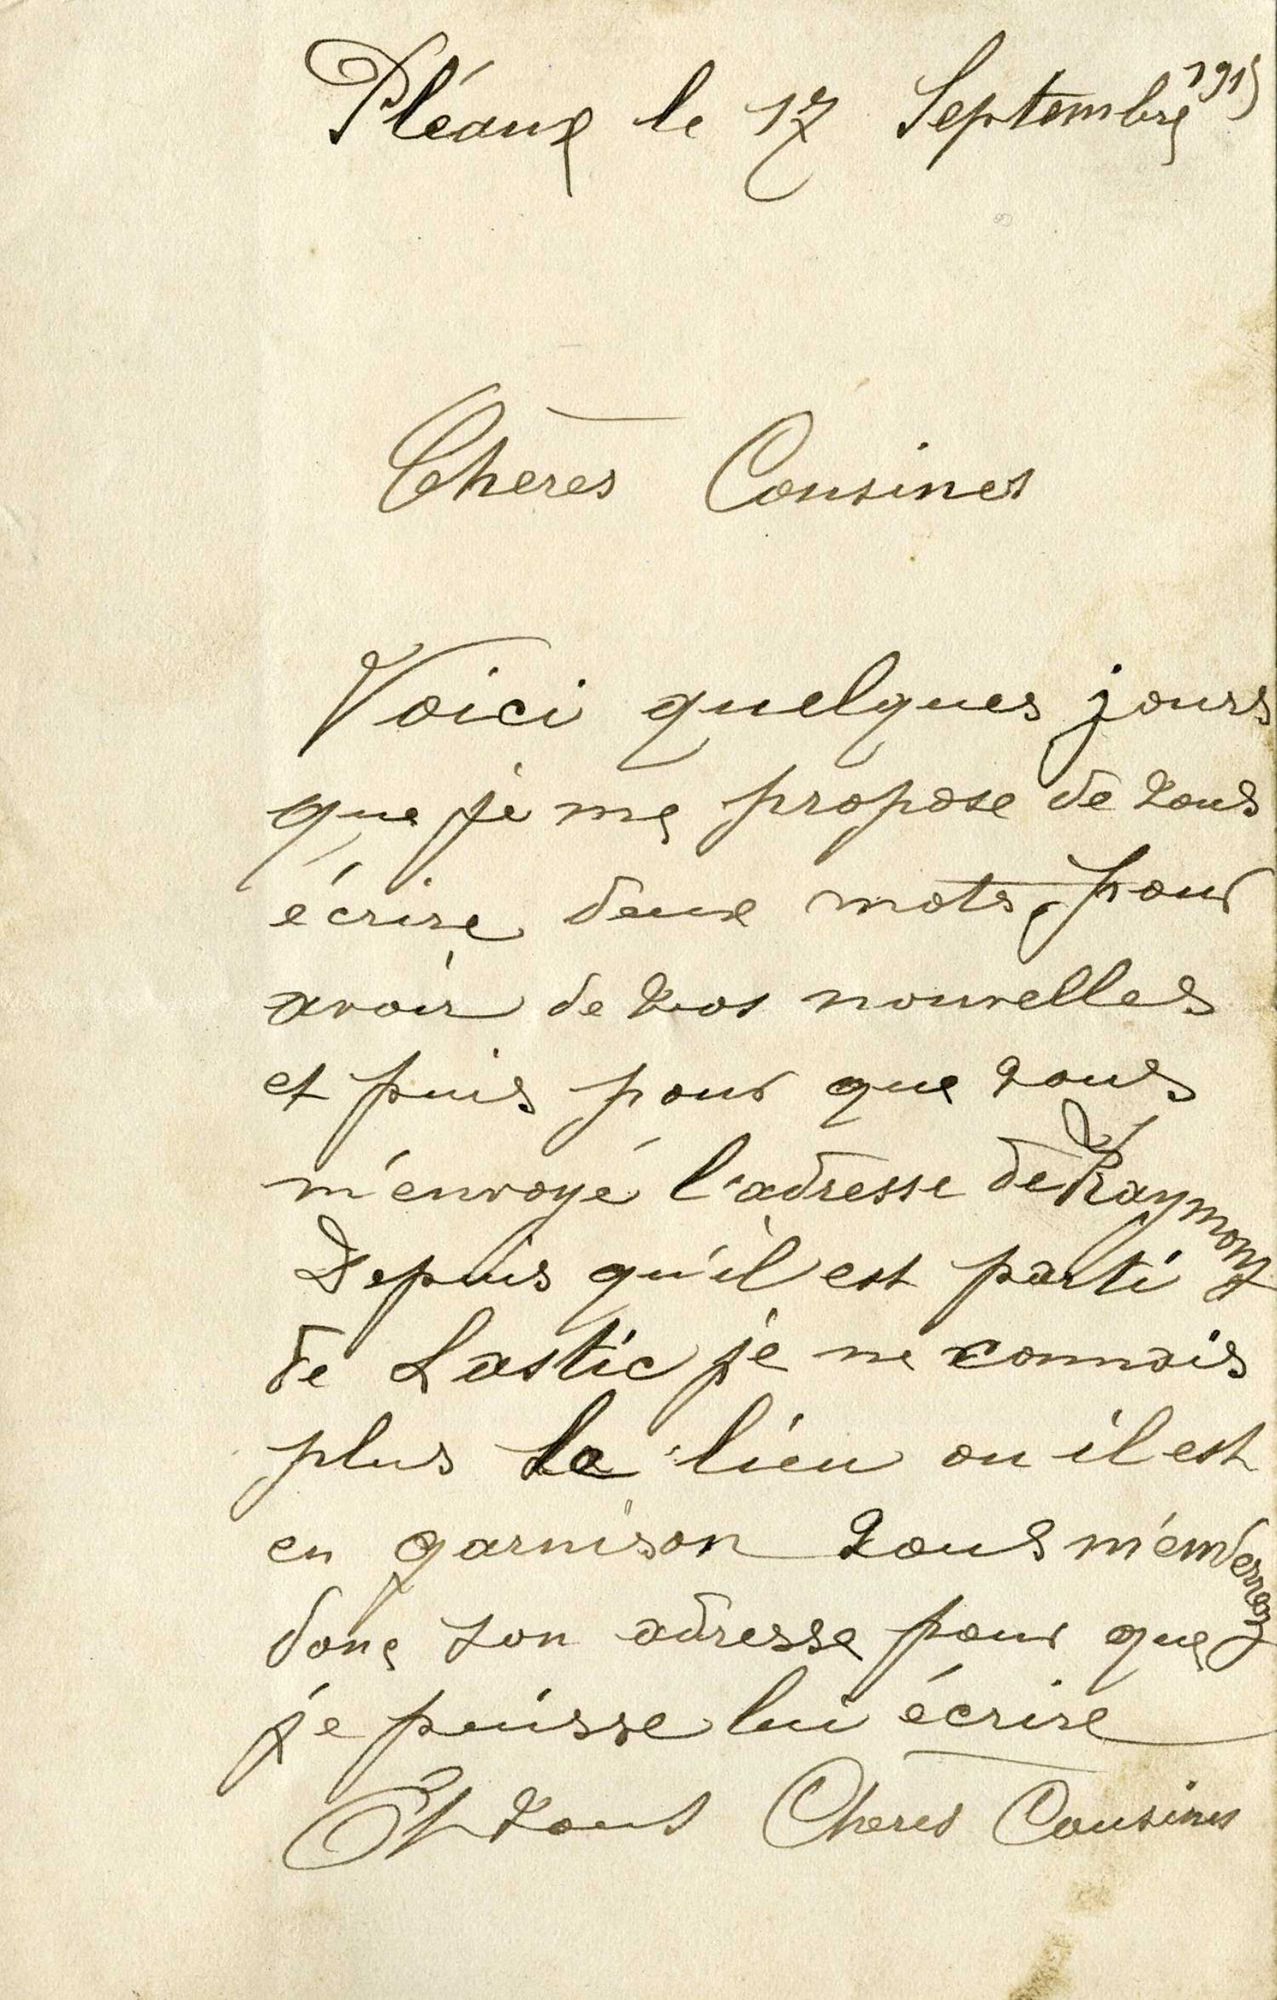 Pléaux le 17 Septembre 1915
Chères Cousines
Voici quelques jours
que je me propose de vous
écrire deux mots, pour
avoir de vos nouvelles
et puis pour que vous
m'envoyé l'adresse de Raymond
Depuis qu'il est parti
de Lastic je ne connais
plus le lieu ou il est
en garnison vous m'enverrez
donc son adresse pour que
je puisse lui écrire
Et vous Chères Cousines